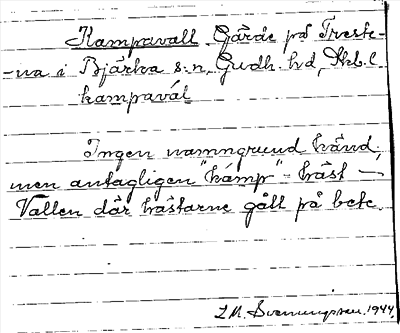 Kampavall Gärde på Trestе-
-na i Bjärka s:n, Gudh. hd, Skb.l.
kampavál
Ingen namngrund känd,
men antagligen "kámp" - häst —
Vallen där hästarne gått på bete.
L.M. Svenungsson. 1944.